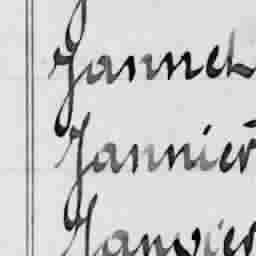 Jannet
Jannier
Janvier